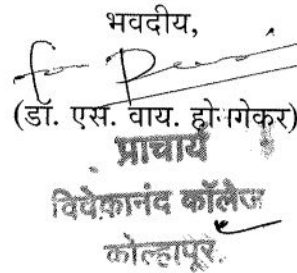 भवदीय,
(डॉ. एस. वाय. होनगेकर)
प्राचार्य
विवेकानंद कॉलेज
कोल्हापूर.